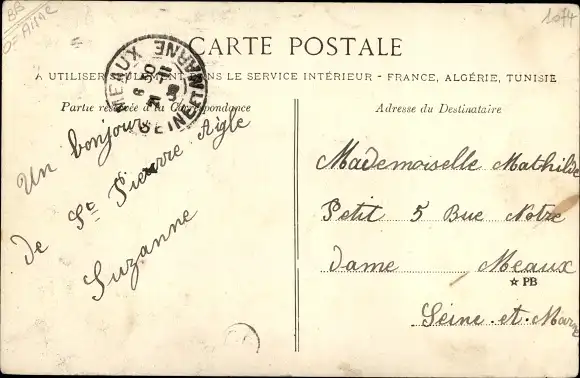 1074
CARTE POSTALE
A UTILISER SEULEMENT DANS LE SERVICE INTÉRIEUR - FRANCE, ALGÉRIE, TUNISIE
Partie réservée à la Correspondance
Adresse du Destinataire
MEAUX
SEINE ET MARNE
Un bonjour
de St Pierre Aigle
Suzanne
Mademoiselle Mathilde
Petit 5 Rue Notre
Dame Meaux
☆ PB
Seine-et-Marne